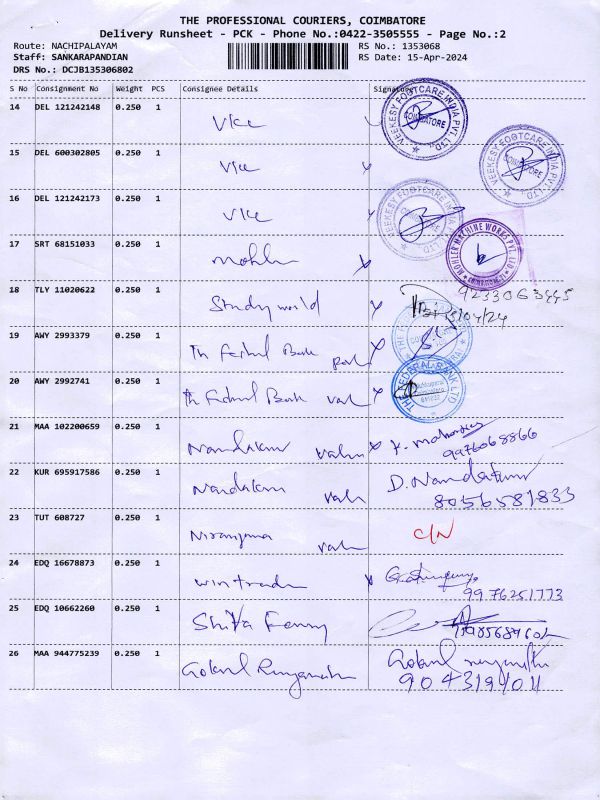 THE PROFESSIONAL COURIERS, COIMBATORE
Delivery Runsheet - PCK - Phone No.:0422-3505555 - Page No.:2
Route: NACHIPALAYAM RS No.: 1353068
Staff: SANKARAPANDIAN RS Date: 15-Apr-2024
DRS No.: DCJB135306802
S No Consignment No Weight PCS Consignee Details Signature
14 DEL 121242148 0.250 1 VKC
VEEKESY FOOTCARE INDIA PVT. LTD. COIMBATORE
15 DEL 600302805 0.250 1 VKC
VEEKESY FOOTCARE INDIA PVT. LTD. COIMBATORE
16 DEL 121242173 0.250 1 VKC
VEEKESY FOOTCARE INDIA PVT. LTD.
17 SRT 68151033 0.250 1
MOHLER MACHINE WORKS PVT. LTD.
18 TLY 11020622 0.250 1 Study world
15/04/24
19 AWY 2993379 0.250 1 Th Fedral Bank
20 AWY 2992741 0.250 1 th Fedral Bank
THE FEDERAL BANK LTD
21 MAA 102200659 0.250 1 Nandakum
9976068866
22 KUR 695917586 0.250 1 Nandakum D. Nandakum
8056581833
23 TUT 608727 0.250 1 Niranjana C/N
24 EDQ 16678873 0.250 1 win trade
9976251773
25 EDQ 10662260 0.250 1 Shiva
26 MAA 944775239 0.250 1 Gokul
Gokul
9043194011